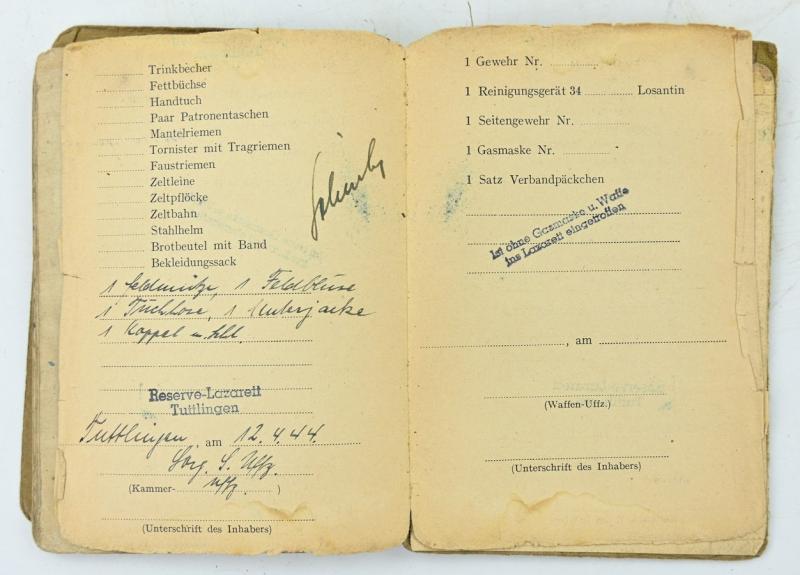 Trinkbecher
Fettbüchse
Handtuch
Paar Patronentaschen
Mantelriemen
Tornister mit Tragriemen
Faustriemen
Zeltleine
Zeltpflöcke
Zeltbahn
Stahlhelm
Brotbeutel mit Band
Bekleidungssack
1 Feldmütze, 1 Feldbluse
1 Tuchhose, 1 Unterjacke
1 Koppel u. Schl.
Reserve-Lazarett
Tuttlingen
Tuttlingen, am 12.4.44.
S. Uffz.
(Kammer- Uffz. )
(Unterschrift des Inhabers)
1 Gewehr Nr.
1 Reinigungsgerät 34 Losantin
1 Seitengewehr Nr.
1 Gasmaske Nr.
1 Satz Verbandpäckchen
Ist ohne Gasmaske u. Waffe
ins Lazarett eingetroffen
, am
(Waffen-Uffz.)
(Unterschrift des Inhabers)